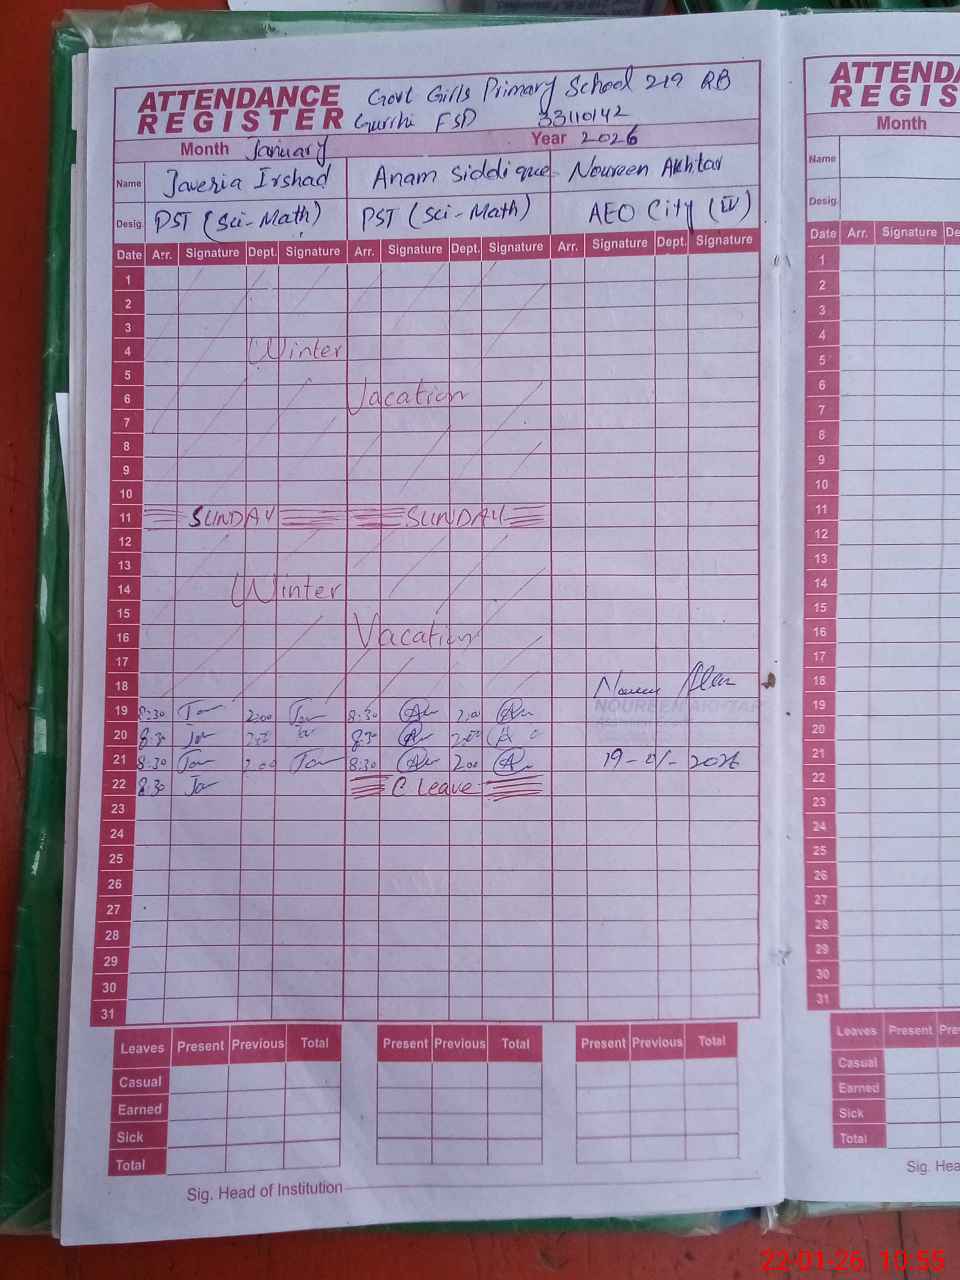 ATTENDANCE REGISTER
Govt Girls Primary School 219 RB
Gurrhi FSD 33110142
Month January Year 2026
Name Javeria Irshad Anam Siddique Noureen Akhtar
Desig. PST (Sci-Math) PST (Sci-Math) AEO City (IV)
Date Arr. Signature Dept. Signature Arr. Signature Dept. Signature Arr. Signature Dept. Signature
1
2
3
4 Winter
5
6 Vacation
7
8
9
10
11 SUNDAY SUNDAY
12
13
14 Winter
15
16 Vacation
17
18 Noureen
19 8:30 2:00 8:30 2:00
NOUREEN AKHTAR
20 8:30 2:00 8:30 2:00
21 8:30 2:00 8:30 2:00 19-01-2026
22 8:30 C Leave
23
24
25
26
27
28
29
30
31
Leaves Present Previous Total Present Previous Total Present Previous Total
Casual
Earned
Sick
Total
Sig. Head of Institution
ATTENDA
REGIS
Month
Name
Desig.
Date Arr. Signature De
1
2
3
4
5
6
7
8
9
10
11
12
13
14
15
16
17
18
19
20
21
22
23
24
25
26
27
28
29
30
31
Leaves Present Pre
Casual
Earned
Sick
Total
Sig. Hea
22-01-26 10:55